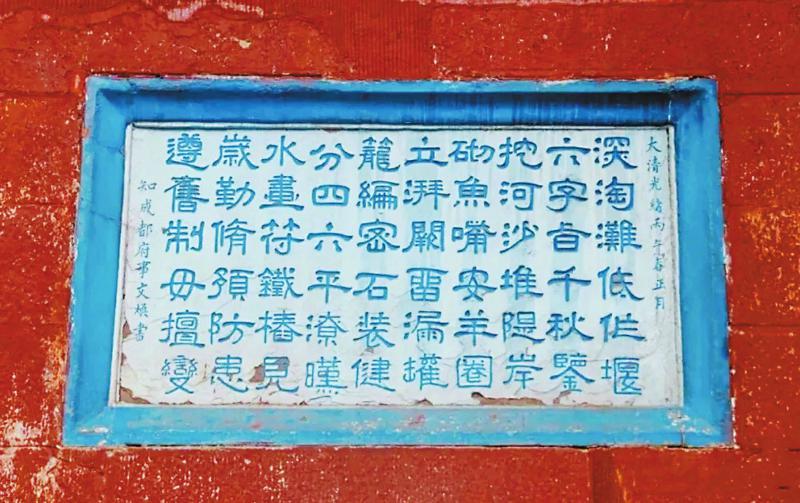 大清光緒丙午春正月
深淘灘低作堰
六字旨千秋鑒
挖河沙堆隄岸
砌魚嘴安羊圈
立湃闕畱漏罐
籠編密石裝健
分四六平潦暵
水畫符鐵樁見
歲勤脩預防患
遵舊制毋擅變
知成都府事文煥書